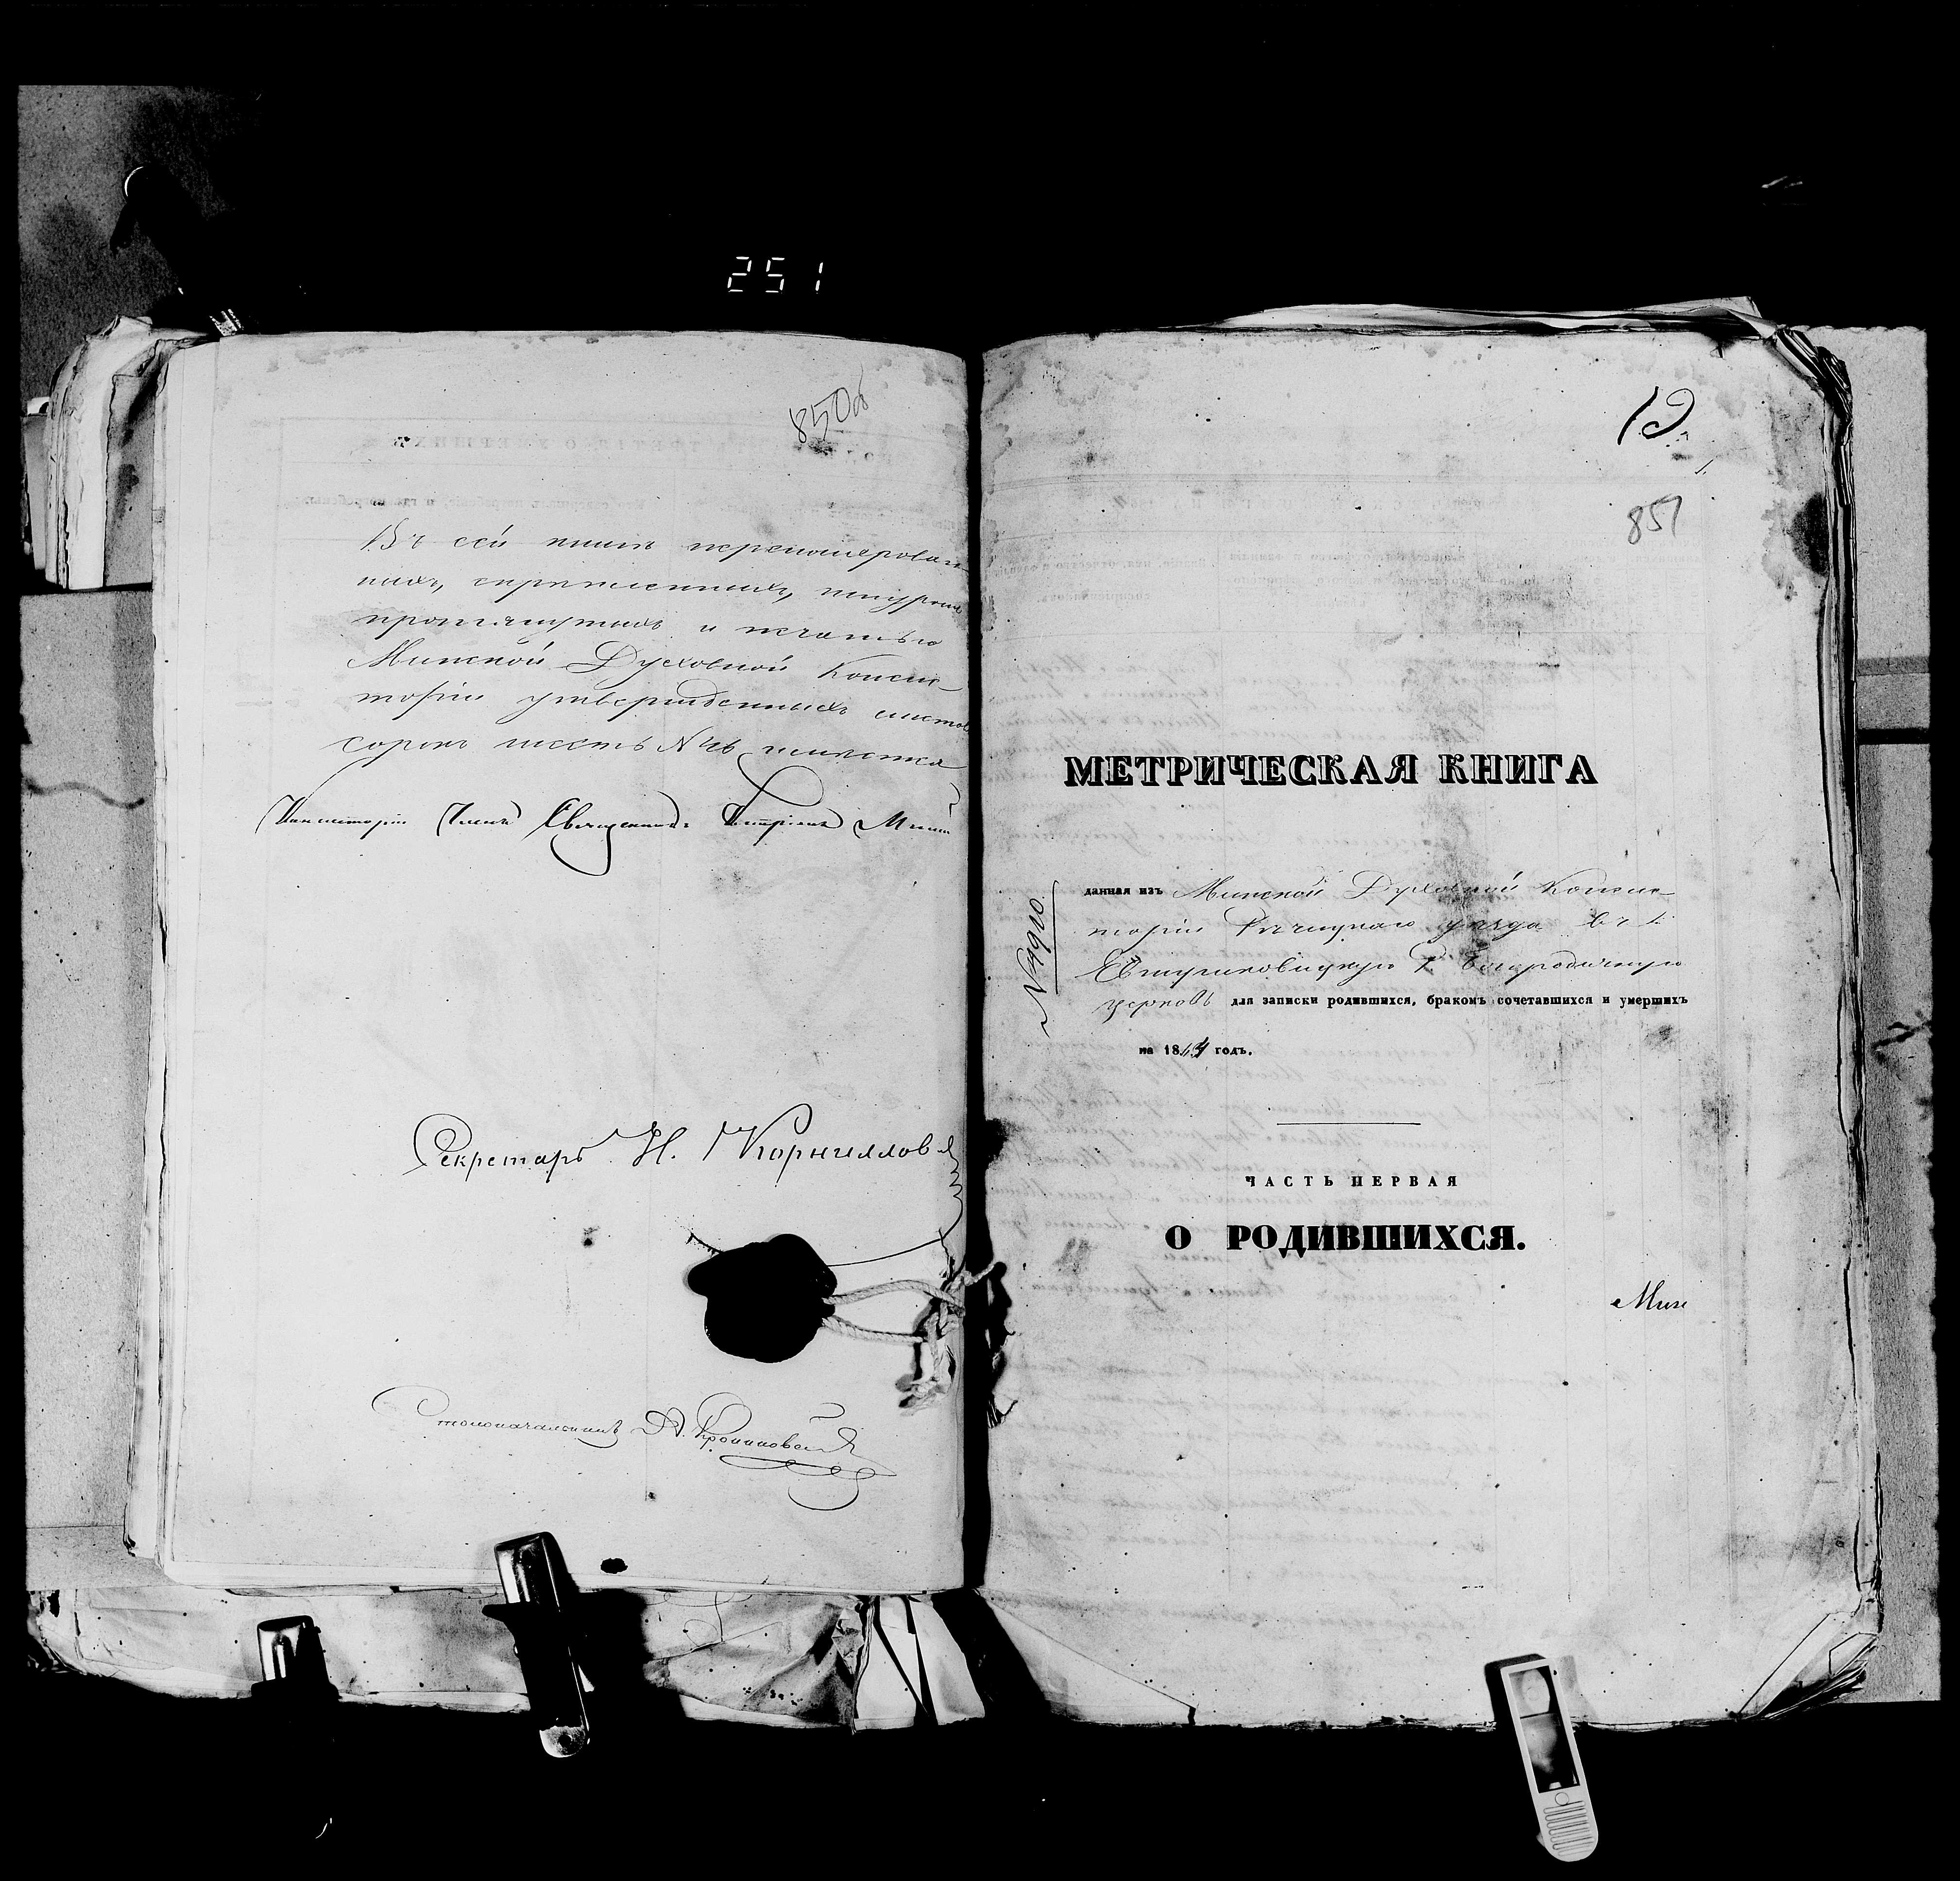 251
850об
Въ сей книгѣ перенумерован-
ныхъ, скрѣпленныхъ, шнуромъ
протянутыхъ и печатью
Минской Духовной Консис-
торіи утвержденныхъ листовъ
сорокъ шесть №46
Консисторіи Членъ Священникъ
Секретарь Н. Корниловъ
Столоначальникъ А.
851
МЕТРИЧЕСКАЯ КНИГА
№9910.
данная изъ Минской Духовной Консис-
торіи Рѣчицкаго уѣзда въ
Богородичную
церковь для записки родившихся, бракомъ сочетавшихся и умершихъ
на 1864 годъ.
ЧАСТЬ ПЕРВАЯ
О РОДИВШИХСЯ.